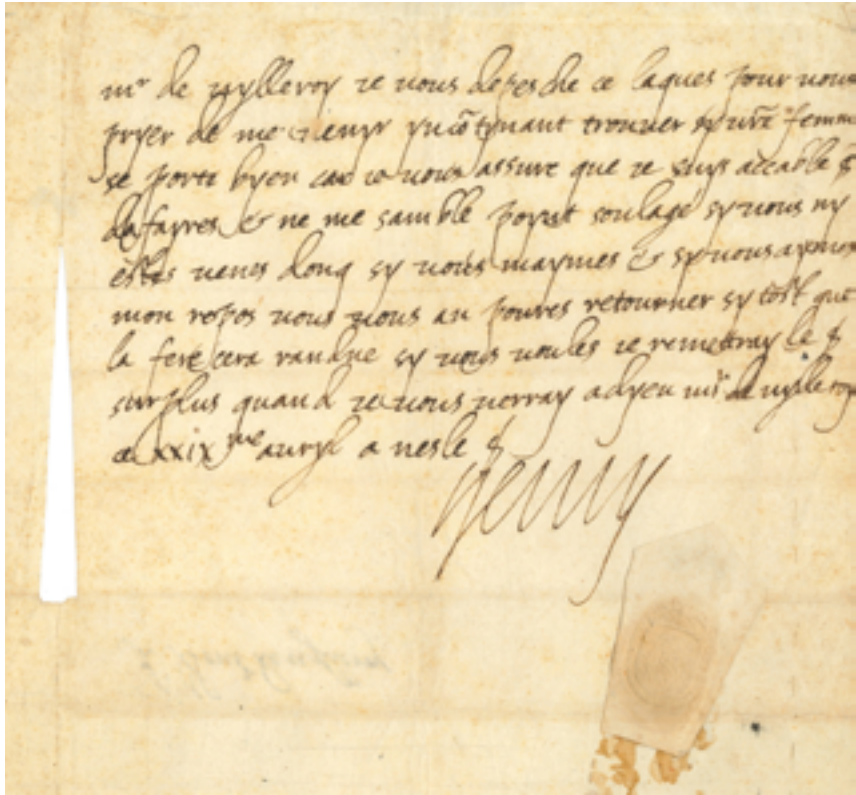 mr de vylleroy je vous depesche ce laques pour vous
pryer de me venyr yncõtynant trouver sy vr̃e femme
se porte byen car je vous assure que je suys accablé
dafayres & ne me samble poynt soulagé sy vous ny
estes venes donq sy vous maymes & sy vous aymes
mon repos vous vous an pourres retourner sy tost que
la fere cera randue sy vous voules je remettray le
surplus quand je vous verray adyeu mr de vylleroy
ce xxixme avryl a nesle
Henry